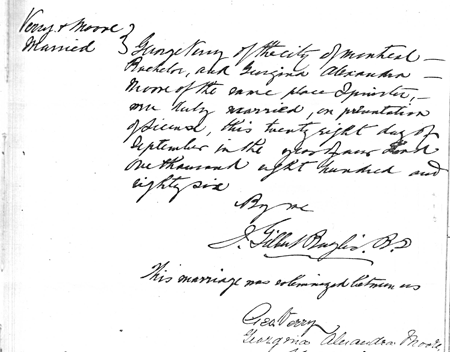 Verry & Moore
Married
George Verry of the city of Montreal —
Bachelor, and Georgina Alexandra —
Moore of the same place Spinster, —
were duly married, on presentation
of license, this twenty eight day of
September in the year of our Lord
One thousand eight hundred and
eighty six
By me
J. Gilbert B.D
This marriage was solemnized between us
Geo Verry
Georgina Alexandra Moore